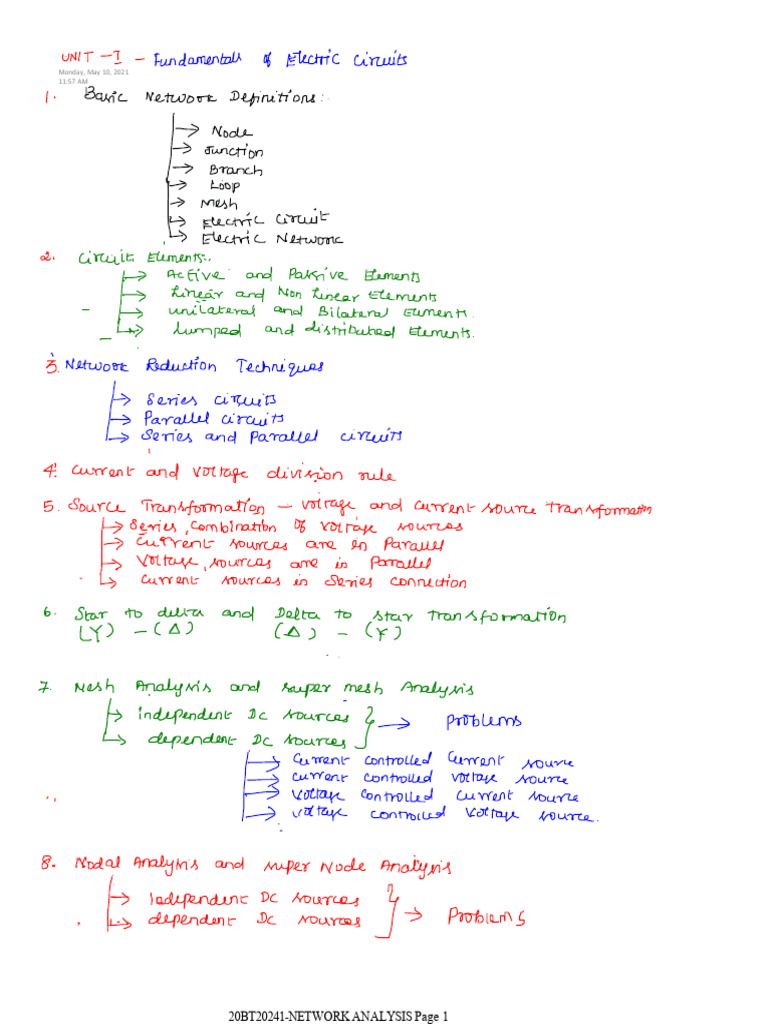 UNIT - I - Fundamentals of Electric Circuits
Monday, May 10, 2021
11:57 AM
1. Basic Network Definitions:
→ Node
→ Junction
→ Branch
→ Loop
→ Mesh
→ Electric Circuit
→ Electric Network
2. Circuit Elements:
→ Active and Passive Elements
→ Linear and Non Linear Elements
→ Unilateral and Bilateral Elements
→ Lumped and distributed Elements.
3. Network Reduction Techniques
→ Series circuits
→ Parallel circuits
→ Series and Parallel circuits
4. Current and Voltage division rule
5. Source Transformation - voltage and current source transformation
→ Series combination of voltage sources
→ Current sources are in Parallel
→ Voltage sources are in Parallel
→ Current sources in Series connection
6. Star to delta and Delta to star Transformation
(Y) - (Δ) (Δ) - (Y)
7. Mesh Analysis and super mesh Analysis
→ independent DC sources
→ dependent DC sources } → Problems
→ Current controlled Current source
→ current controlled voltage source
→ Voltage controlled current source
→ voltage controlled Voltage source.
8. Nodal Analysis and super Node Analysis
→ Independent DC sources
→ dependent DC sources } → Problems
20BT20241-NETWORK ANALYSIS Page 1